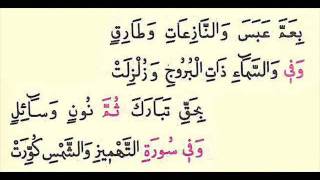 بِعَمَّ عَبَسَ وَالنَّازِعَاتِ وَطَارِقٍ
وَفِي وَالسَّمَاءِ ذَاتِ الْبُرُوجِ وَزُلْزِلَتْ
بِحَقِّ تَبَارَكَ ثُمَّ نُونٍ وَسَائِلٍ
وَفِي سُورَةِ التَّهْمِيزِ وَالشَّمْسِ كُوِّرَتْ